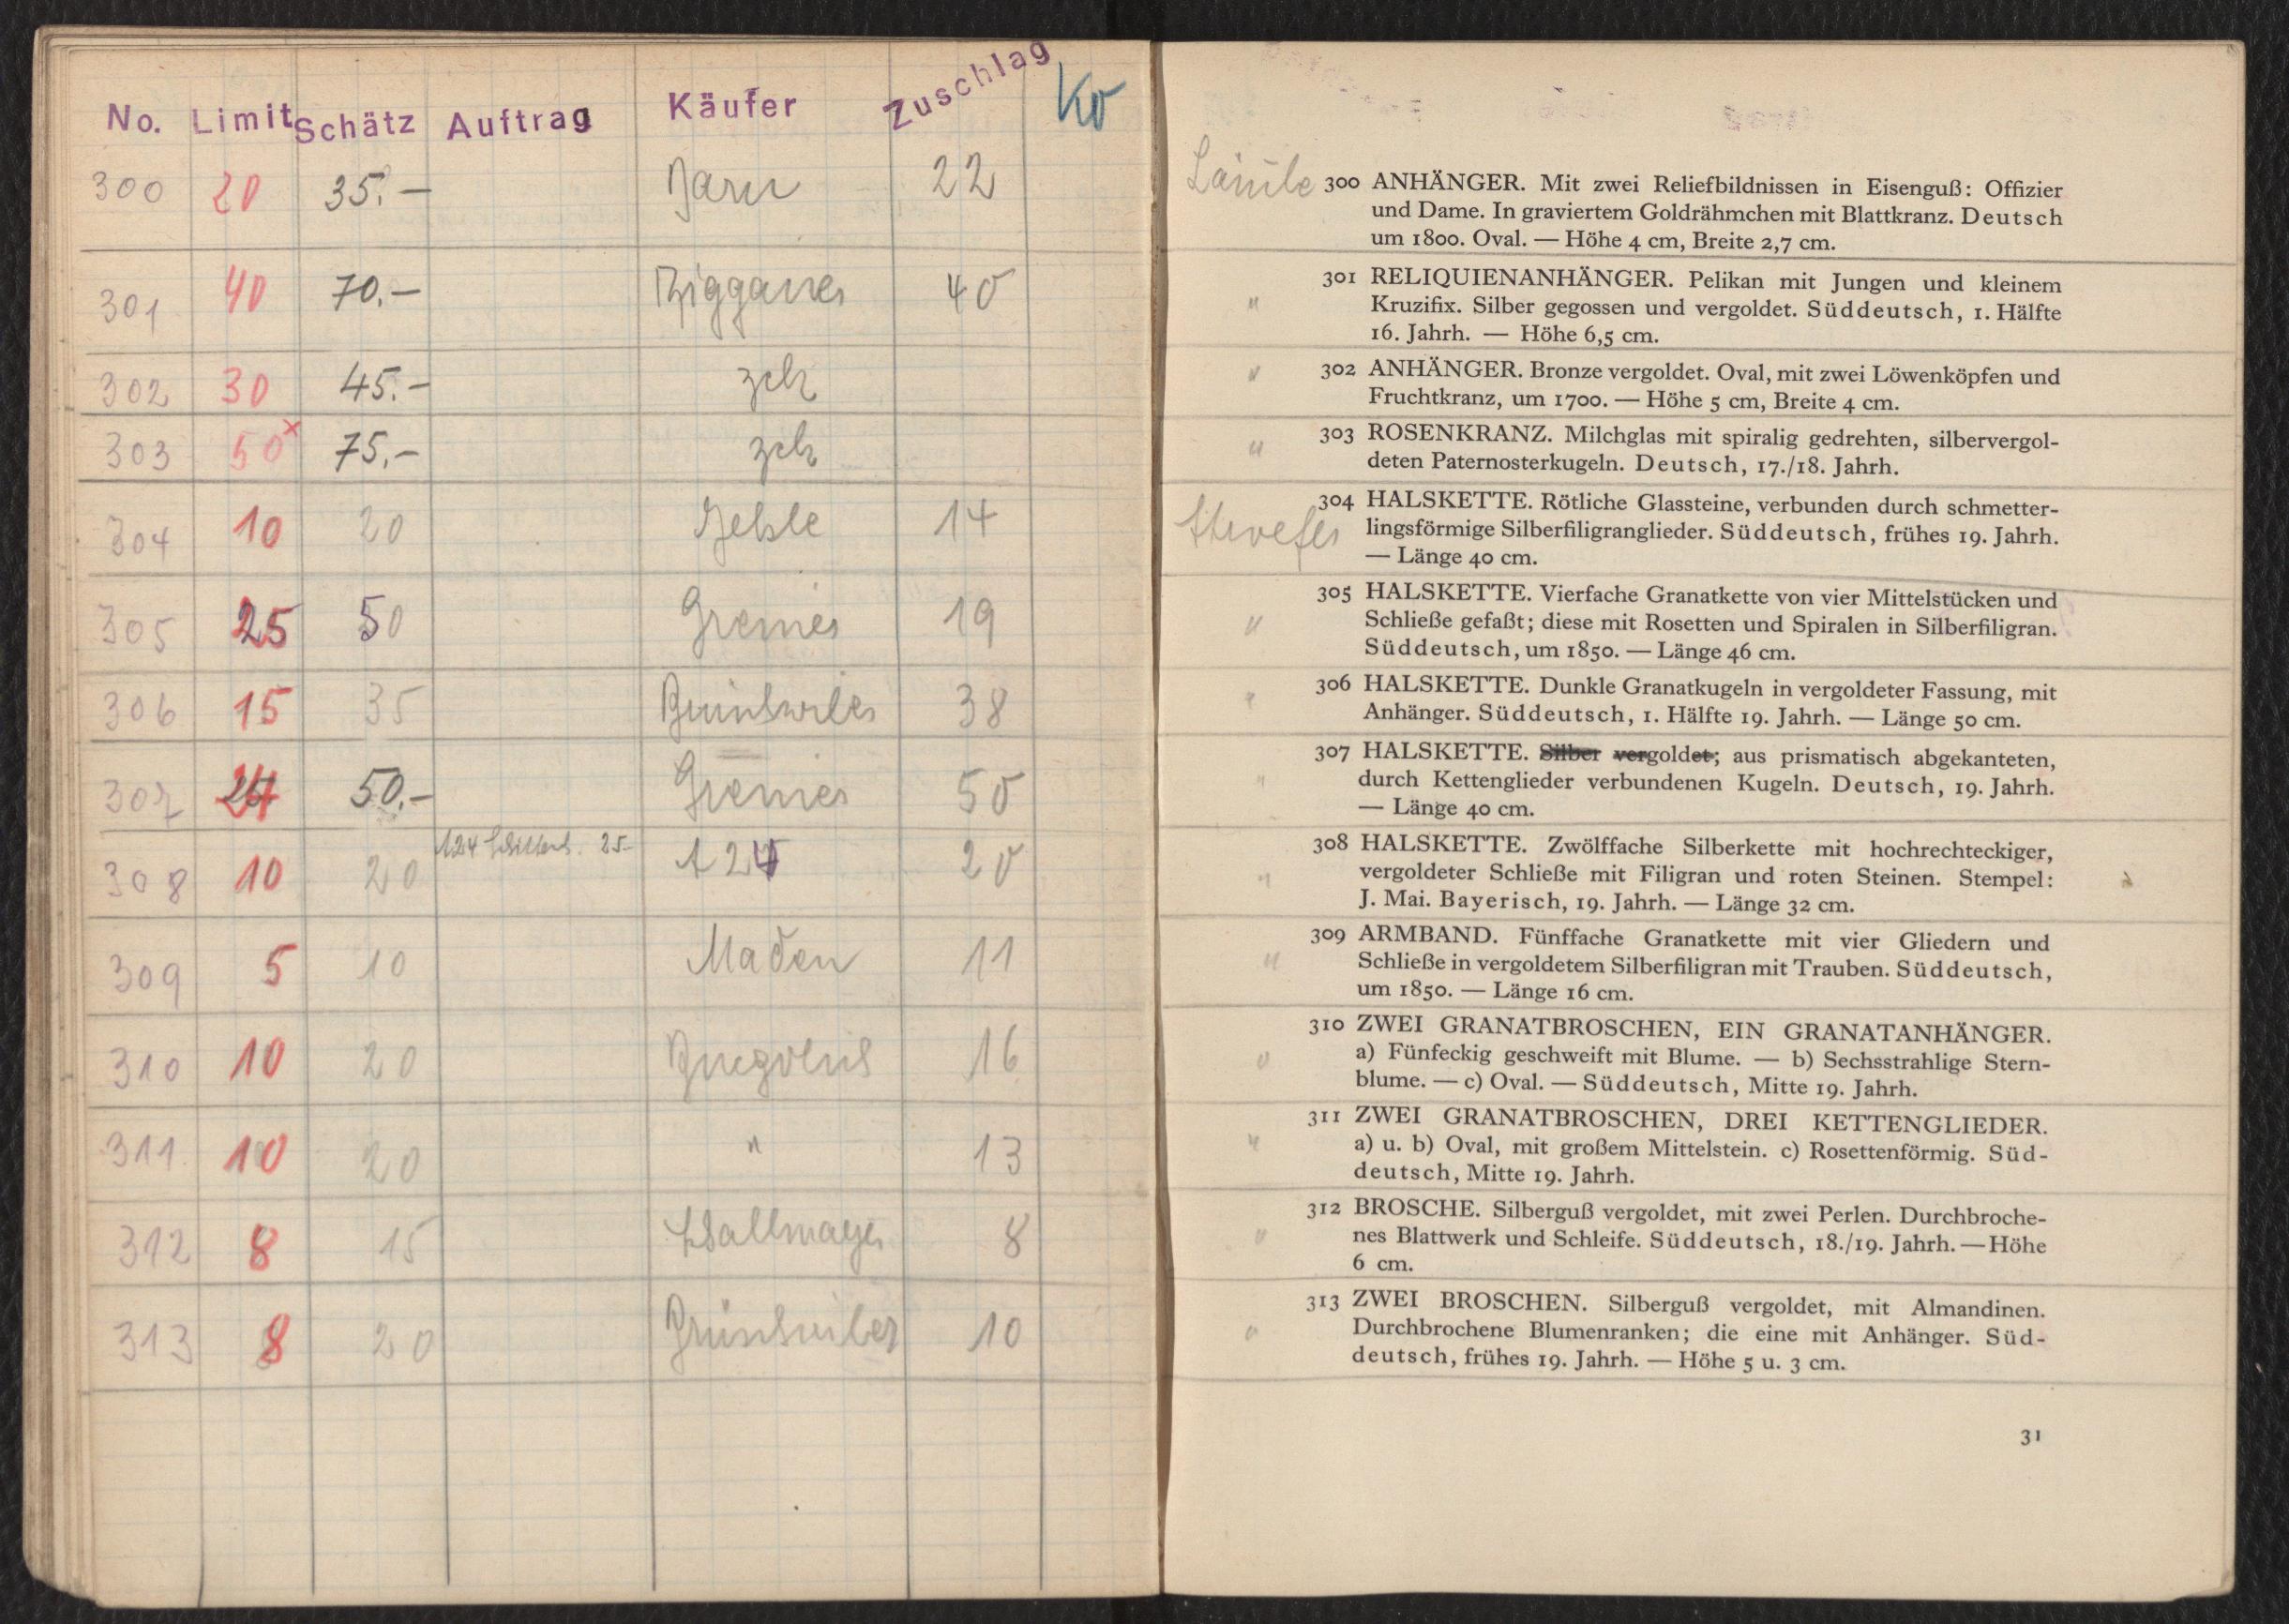 No. Limit Schätz Auftrag Käufer Zuschlag
300 20 35.– 22
301 40 70.– 40
302 30 45.–
303 50x 75.–
304 10 20 14
305 25 50 19
306 15 35 38
307 50.– 50
308 10 20 124 25.- 124 20
309 5 10 11
310 10 20 16
311 10 20 " 13
312 8 15 Wallmayer 8
313 8 20 10
300 ANHÄNGER. Mit zwei Reliefbildnissen in Eisenguß: Offizier
und Dame. In graviertem Goldrähmchen mit Blattkranz. Deutsch
um 1800. Oval. — Höhe 4 cm, Breite 2,7 cm.
" 301 RELIQUIENANHÄNGER. Pelikan mit Jungen und kleinem
Kruzifix. Silber gegossen und vergoldet. Süddeutsch, 1. Hälfte
16. Jahrh. — Höhe 6,5 cm.
" 302 ANHÄNGER. Bronze vergoldet. Oval, mit zwei Löwenköpfen und
Fruchtkranz, um 1700. — Höhe 5 cm, Breite 4 cm.
" 303 ROSENKRANZ. Milchglas mit spiralig gedrehten, silbervergol-
deten Paternosterkugeln. Deutsch, 17./18. Jahrh.
304 HALSKETTE. Rötliche Glassteine, verbunden durch schmetter-
lingsförmige Silberfiligranglieder. Süddeutsch, frühes 19. Jahrh.
— Länge 40 cm.
" 305 HALSKETTE. Vierfache Granatkette von vier Mittelstücken und
Schließe gefaßt; diese mit Rosetten und Spiralen in Silberfiligran.
Süddeutsch, um 1850. — Länge 46 cm.
" 306 HALSKETTE. Dunkle Granatkugeln in vergoldeter Fassung, mit
Anhänger. Süddeutsch, 1. Hälfte 19. Jahrh. — Länge 50 cm.
" 307 HALSKETTE. Silber vergoldet; aus prismatisch abgekanteten,
durch Kettenglieder verbundenen Kugeln. Deutsch, 19. Jahrh.
— Länge 40 cm.
" 308 HALSKETTE. Zwölffache Silberkette mit hochrechteckiger,
vergoldeter Schließe mit Filigran und roten Steinen. Stempel:
J. Mai. Bayerisch, 19. Jahrh. — Länge 32 cm.
" 309 ARMBAND. Fünffache Granatkette mit vier Gliedern und
Schließe in vergoldetem Silberfiligran mit Trauben. Süddeutsch,
um 1850. — Länge 16 cm.
" 310 ZWEI GRANATBROSCHEN, EIN GRANATANHÄNGER.
a) Fünfeckig geschweift mit Blume. — b) Sechsstrahlige Stern-
blume. — c) Oval. — Süddeutsch, Mitte 19. Jahrh.
" 311 ZWEI GRANATBROSCHEN, DREI KETTENGLIEDER.
a) u. b) Oval, mit großem Mittelstein. c) Rosettenförmig. Süd-
deutsch, Mitte 19. Jahrh.
" 312 BROSCHE. Silberguß vergoldet, mit zwei Perlen. Durchbroche-
nes Blattwerk und Schleife. Süddeutsch, 18./19. Jahrh. — Höhe
6 cm.
" 313 ZWEI BROSCHEN. Silberguß vergoldet, mit Almandinen.
Durchbrochene Blumenranken; die eine mit Anhänger. Süd-
deutsch, frühes 19. Jahrh. — Höhe 5 u. 3 cm.
31